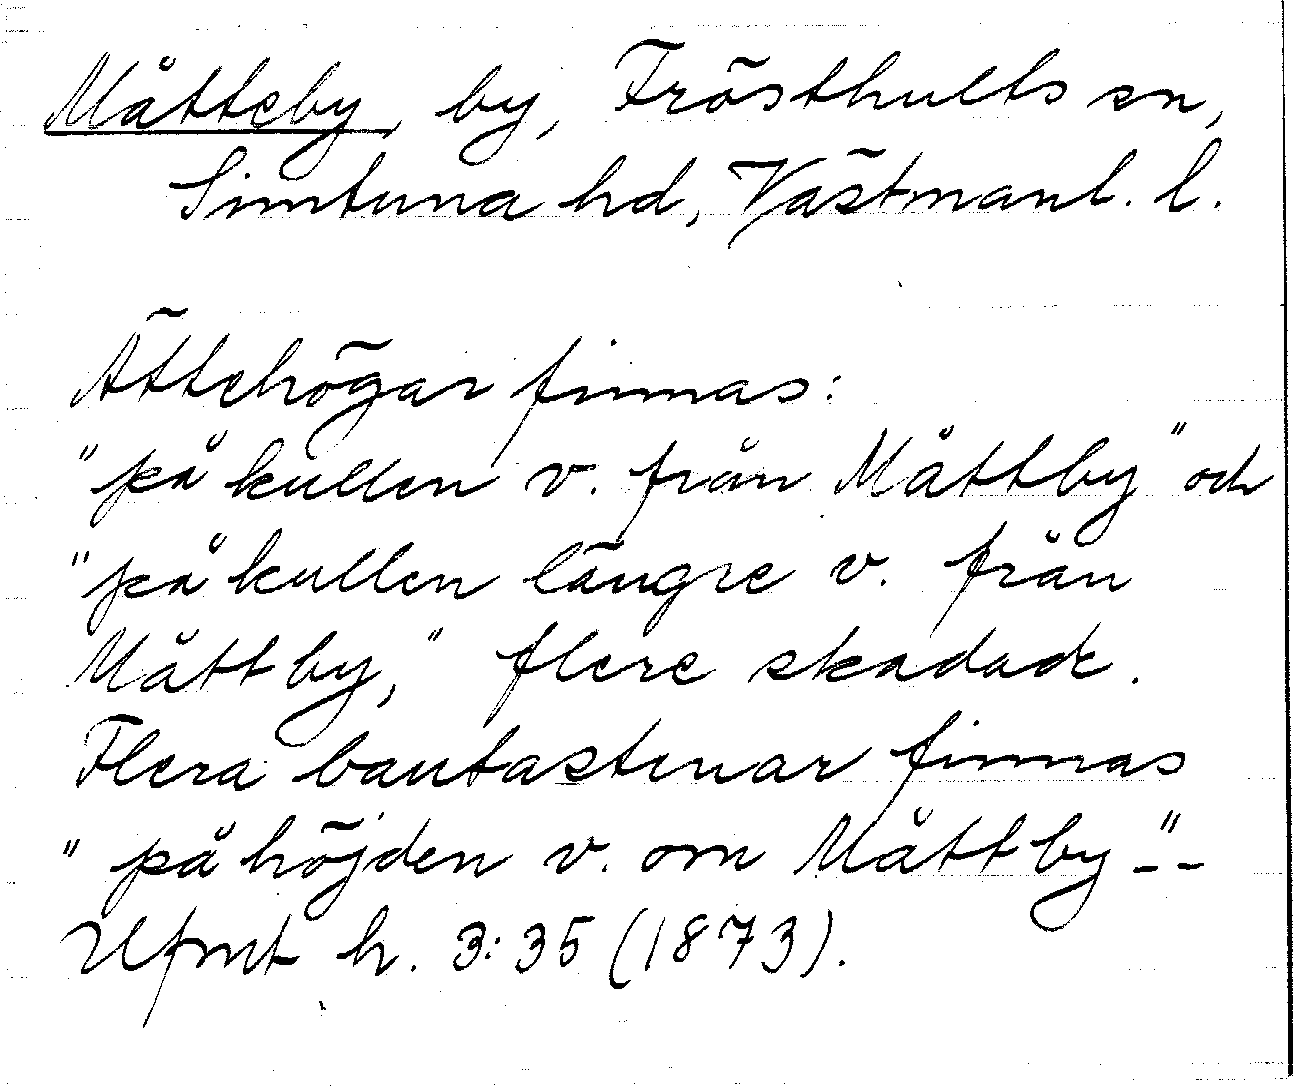 Måtteby, by, Frösthults sn,
Simtuna hd, Västmanl. l.
Ättehögar finnas:
"på kullen v. från Måttby" och
"på kullen längre v. från
Måttby," flere skadade.
Flera bautastenar finnas
"på höjden v. om Måttby" - -
Ufmt h. 3:35 (1873).